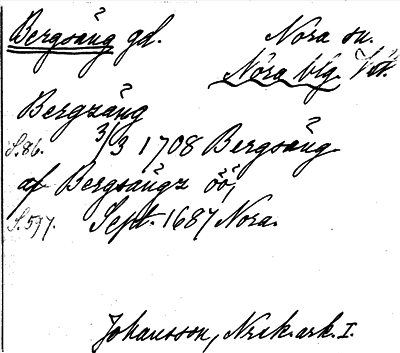 Bergsäng gd. Nora sn.
Nora blg. Vstm.
Bergzäng
S.86. 3/3 1708 Bergsäng
af Bergsängz öö,
S.597. Sept. 1687 Nora.
Johansson, Nrak.ark. I.